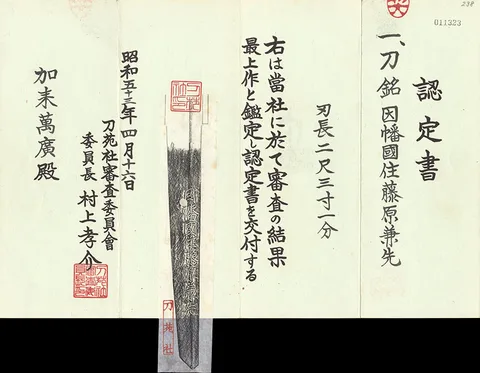 238
011323
認定書
一、刀 銘 因幡國住藤原兼先
刃長二尺三寸一分
右は當社に於て審査の結果
最上作と鑑定し認定書を交付する
昭和五十三年四月十六日
刀苑社審査委員會
委員長 村上孝介
加来萬廣殿
刀苑社